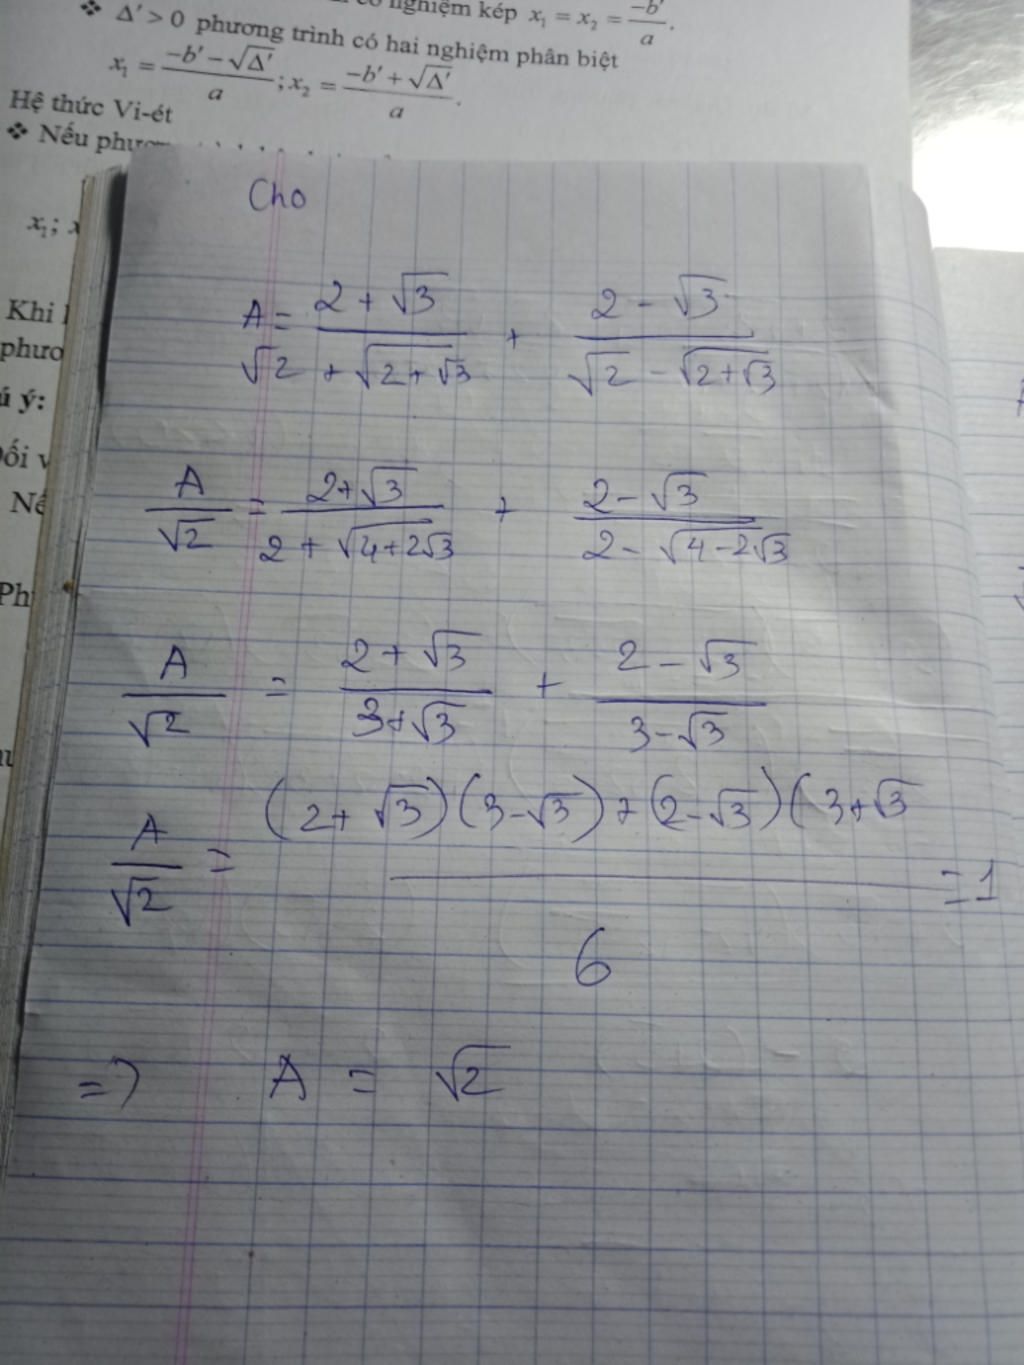 có nghiệm kép x₁ = x₂ = -b'/a.
❖ Δ' > 0 phương trình có hai nghiệm phân biệt
x₁ = (-b' - √Δ')/a ; x₂ = (-b' + √Δ')/a.
Hệ thức Vi-ét
❖ Nếu
x₁;
Khi
ú ý:
Cho
A = (2 + √3)/(√2 + √(2+√3)) + (2 - √3)/(√2 - √(2+√3))
A/√2 = (2+√3)/(2 + √(4+2√3)) + (2-√3)/(2 - √(4-2√3))
A/√2 = (2+√3)/(3+√3) + (2-√3)/(3-√3)
A/√2 = ((2+√3)(3-√3)+(2-√3)(3+√3)/6 = 1
=> A = √2